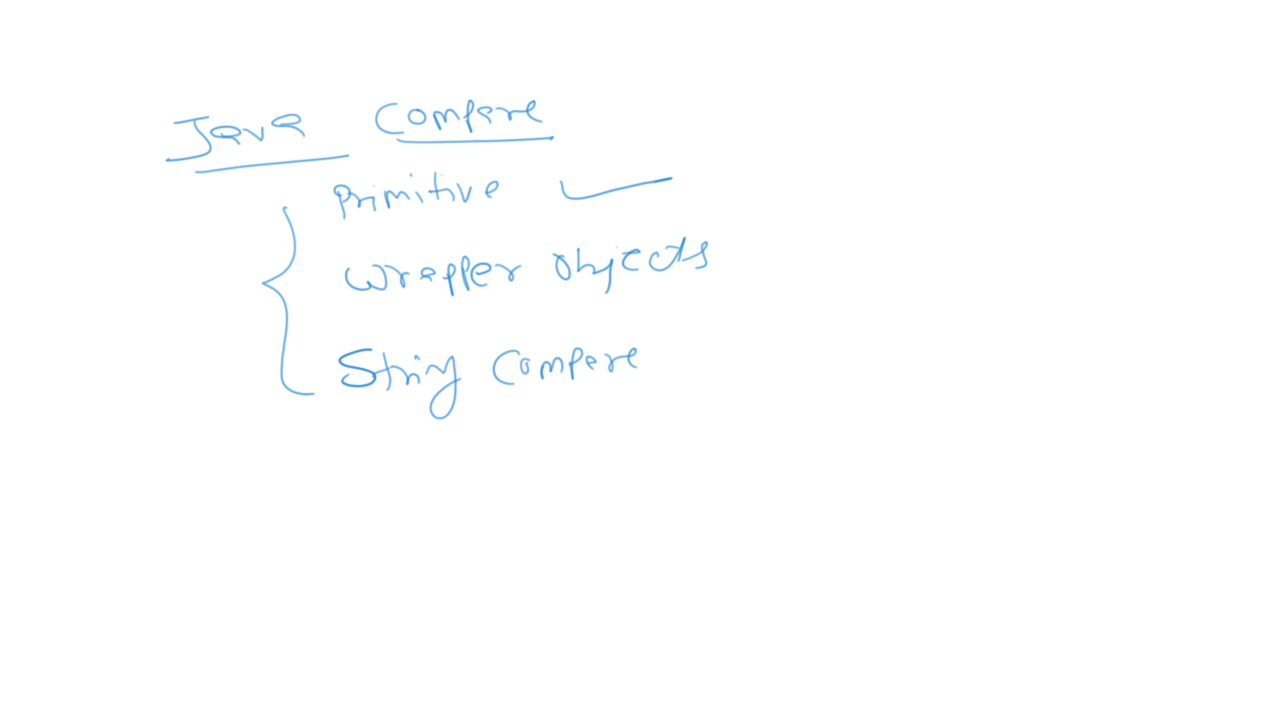 Java Compare
Primitive
Wrapper Objects
String Compare